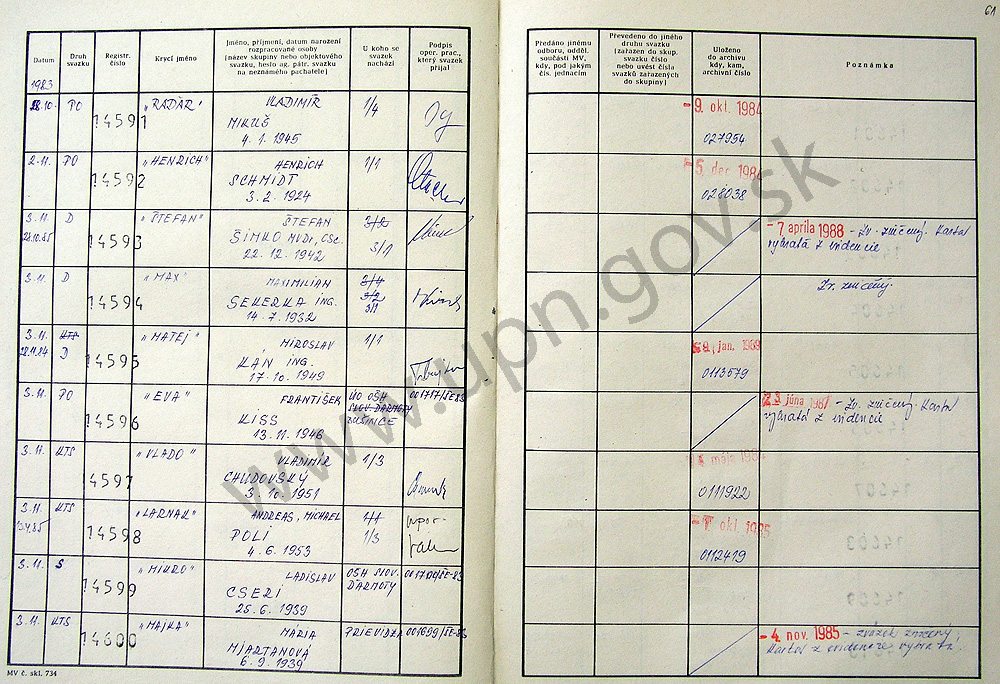 61
Datum
Druh svazku
Registr. číslo
Krycí jméno
Jméno, příjmení, datum narození rozpracované osoby (název skupiny nebo objektového svazku, heslo ag. pátr. svazku na neznámého pachatele)
U koho se svazek nachází
Podpis oper. prac., který svazek přijal
Předáno jinému odboru, odděl. součásti MV, kdy, pod jakým čís. jednacím
Převedeno do jiného druhu svazku (zařazen do skup. svazku číslo nebo uvést čísla svazků zařazených do skupiny)
Uloženo do archivu kdy, kam, archivní číslo
Poznámka
1983
28.10. PO 14591 "RADAR" VLADIMÍR 1/4
MIKUŠ
4. 1. 1945
- 9. okt. 1984
027954
2.11. PO 14592 "HENRICH" HENRICH 1/1
SCHMIDT
3. 2. 1924
- 5. dec. 1984
028038
3.11. D 14593 "ŠTEFAN" ŠTEFAN 3/2
28.10.85 ŠIMKO MVDr, CSc. 3/1
22. 12. 1942
- 7. apríla 1988 - Zv. zničený. Karta
vybratá z evidencie
3.11. D 14594 "MAX" MAXIMILIAN 3/4
SEKERKA ING. 3/2
14. 7. 1932 3/1
Zv. zničený.
3.11. KTS 14595 "MATEJ" MIROSLAV 1/1
28.11.84 D KÁN ING
17. 10. 1949
jan. 1989
0113579
3.11. PO 14596 "EVA" FRANTIŠEK ÚO OŠH 001717/SE-83
KISS SLOV. ĎARMOTY
13. 11. 1946 DUŠINCE
23. júna 1987 - Zv. zničený. Karta
vybratá z evidencie
3.11. KTS 14597 "VLADO" VLADIMÍR 1/3
CHUDOVSKÝ
3. 10. 1951
0111922
3.11. KTS 14598 "LARNAK" ANDREAS, MICHAEL 1/1
13.4.85 POLI 1/3
4. 6. 1953
okt. 1985
0112419
3.11. S 14599 "MIKRO" LADISLAV OŠH SLOV. 001700/SE-83
CSERI ĎARMOTY
25. 6. 1939
3.11. KTS 14600 "MAJKA" MÁRIA PRIEVIDZA 001699/SE-83
MJARTANOVÁ
6. 9. 1939
- 4. nov. 1985 - zväzok zničený,
z evidencie
MV č. skl. 734
www.upn.gov.sk